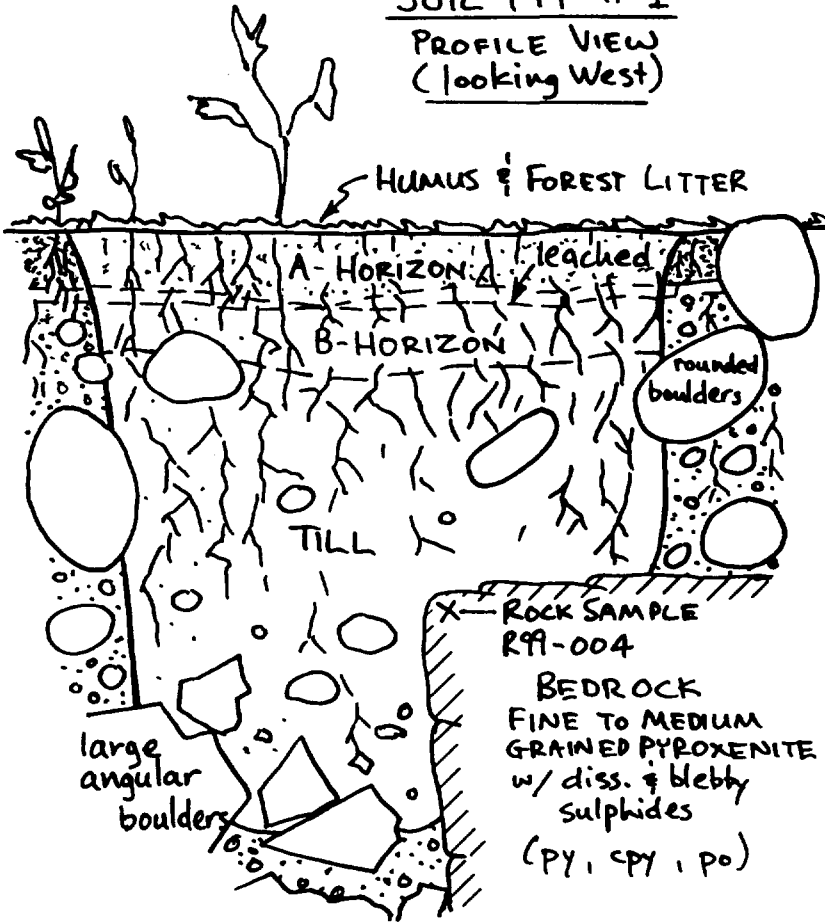 PROFILE VIEW
(looking West)
HUMUS & FOREST LITTER
A-HORIZON
leached
B-HORIZON
rounded
boulders
TILL
X—ROCK SAMPLE
R99-004
BEDROCK
FINE TO MEDIUM
GRAINED PYROXENITE
w/ diss. & blebby
sulphides
(py, cpy, po)
large
angular
boulders